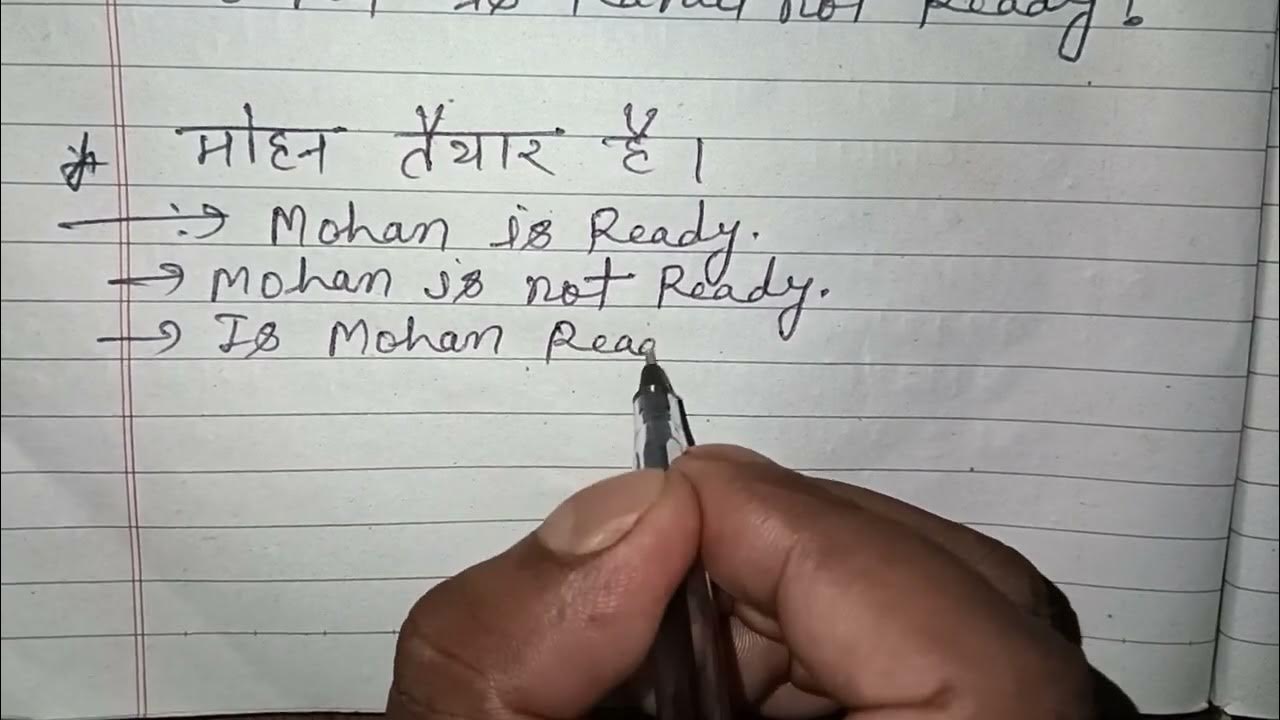 Is not Ready!
* मोहन तैयार है।
→ Mohan is Ready.
→ Mohan is not Ready.
→ Is Mohan Read